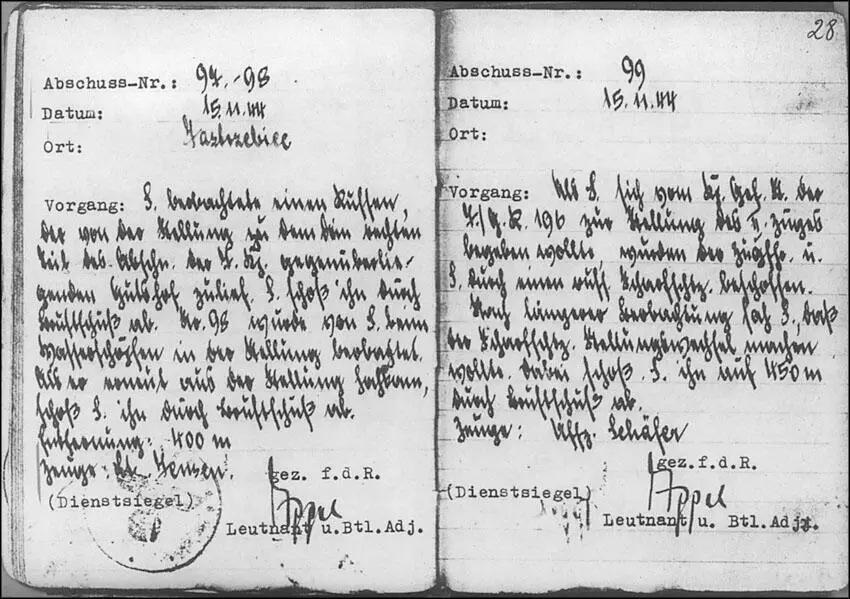 Abschuss-Nr.: 97.-98
Datum: 15.11.44
Ort: Jastrzebiec
Vorgang: S. beobachtete einen Russen,
der von der Stellung zu dem dem rechten
Teil des Abschn. der 7. Kp. gegenüberlie-
genden Gutshof zulief. S. schoß ihn durch
Brustschuß ab. No. 98 wurde von S. beim
Wasserschöpfen in der Stellung beobachtet.
Als er erneut aus der Stellung
schoß S. ihn durch Brustschuß ab.
Entfernung: 400 m
Zeuge: Lt. Jensen.
gez. f.d.R.
(Dienstsiegel)
Appel
Leutnant u.Btl.Adj.
28
Abschuss-Nr.: 99
Datum: 15.11.44
Ort:
Vorgang: Als S. sich vom Kp. Gef. St. der
7./G.R. 196 zur Stellung des II. Zuges
begeben wollte wurden der Zugfhr. u.
S. durch einen russ Scharfschtz. beschossen.
Nach längerer Beobachtung sah S., daß
der Scharfschtz. Stellungswechsel machen
wollte. Dabei schoß S. ihn auf 450 m
durch Brustschuß ab.
Zeuge: Uffz. Schäfer
gez.f.d.R.
(Dienstsiegel)
Appel
Leutnant u. Btl.Adj.